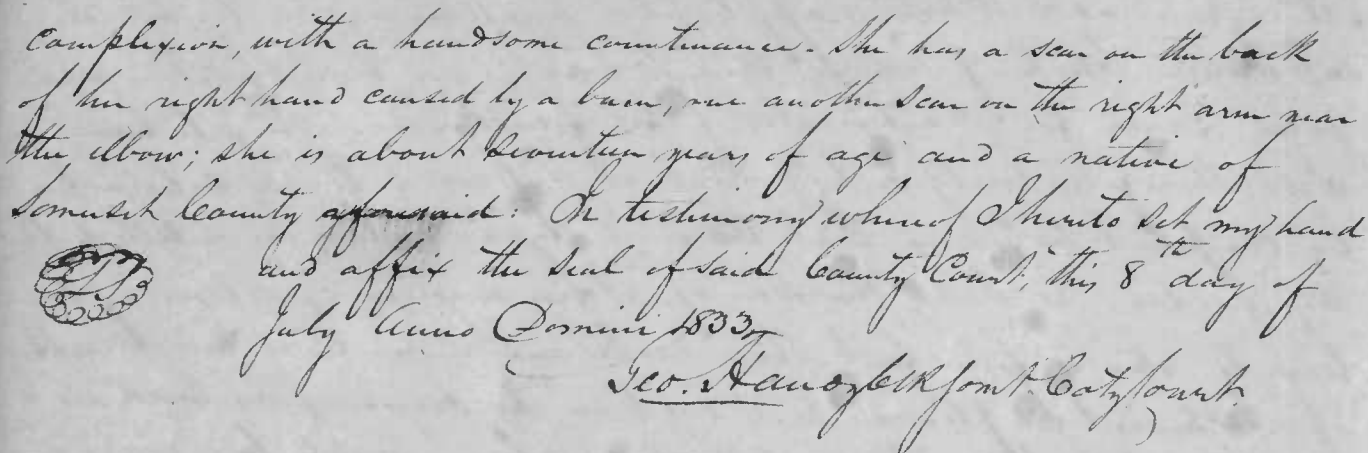 complexion, with a handsome countenance. She has a scar on the back
of her right hand caused by a burn, and another scar on the right arm near
the elbow; she is about seventeen years of age and a native of
Somerset County aforesaid: In testimony whereof I hereto set my hand
and affix the seal of said County Court, this 8th day of
July Anno Domini 1833
Geo. Handy Clk Somt. Coty Court.